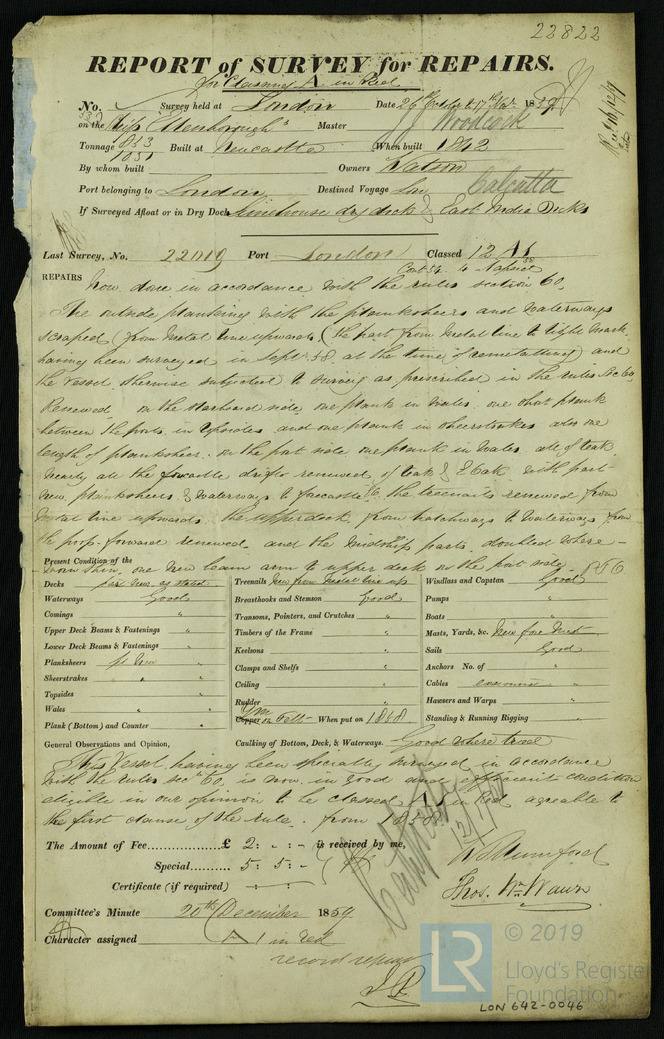 22822
REPORT of SURVEY for REPAIRS.
for Classing A in Red
No. Survey held at London Date 26th October & 17th Nov 1859
on the Ship "Ellenborough" Master J Woodcock
Tonnage 853 1031 Built at Newcastle When built 1842
By whom built Owners Watson
Port belonging to London Destined Voyage Calcutta
If Surveyed Afloat or in Dry Dock Limehouse dry dock & East India Docks
Last Survey, No. 22019 Port London Classed 12 A1
Cont 54
REPAIRS Now done in accordance with the rules section 60,
The outside planking with the planksheers and waterways
scraped (from metal line upwards, (the part from metal line to light mark
having been surveyed in Sept 58 at the time of remetalling) and
the vessel otherwise subjected to survey as prescribed in the rules Sec 60,
Renewed on the starboard side, one plank in wales, one short plank
between the ports in topsides and one plank in sheerstrakes also one
length of planksheer: on the port side one plank in wales, all of teak
nearly all the forecastle driftr renewed of teak & E. Oak with part
new planksheers & waterways to forecastle, the treenails renewed from
metal line upwards, the upper deck, from hatchways to waterways from
the poop forward renewed, and the midship parts doubled where
worn thin, one new beam arm to upper deck on the port side.
Present Condition of the
Decks part new as stated
Waterways Good
Comings "
Upper Deck Beams & Fastenings "
Lower Deck Beams & Fastenings "
Planksheers pt New "
Sheerstrakes "
Topsides "
Wales "
Plank (Bottom) and Counter "
Treenails New from metal line up
Breasthooks and Stemson Good
Transoms, Pointers, and Crutches "
Timbers of the Frame "
Keelsons "
Clamps and Shelfs "
Ceiling "
Rudder "
Copper on Felt When put on 1858
Windlass and Capstan Good
Pumps "
Boats "
Masts, Yards, &c. New fore Mast
Sails Good
Anchors No. of "
Cables "
Hawsers and Warps "
Standing & Running Rigging "
General Observations and Opinion, Caulking of Bottom, Deck, & Waterways. Good where tried
This Vessel, having been specially surveyed in accordance
with the rules sec 60, is now in good and efficient condition
eligible in our opinion to be classed A1 in Red agreable to
the first clause of the rule. from 1858
The Amount of Fee £ 2: is received by me,
Special 5: 5: -
Certificate (if required)
Thos. Wm Wawn
Committee's Minute 20th December 1859
Character assigned A1 in red
record repairs
© 2019
LR
Lloyd's Register
Foundation
LON 642-0046